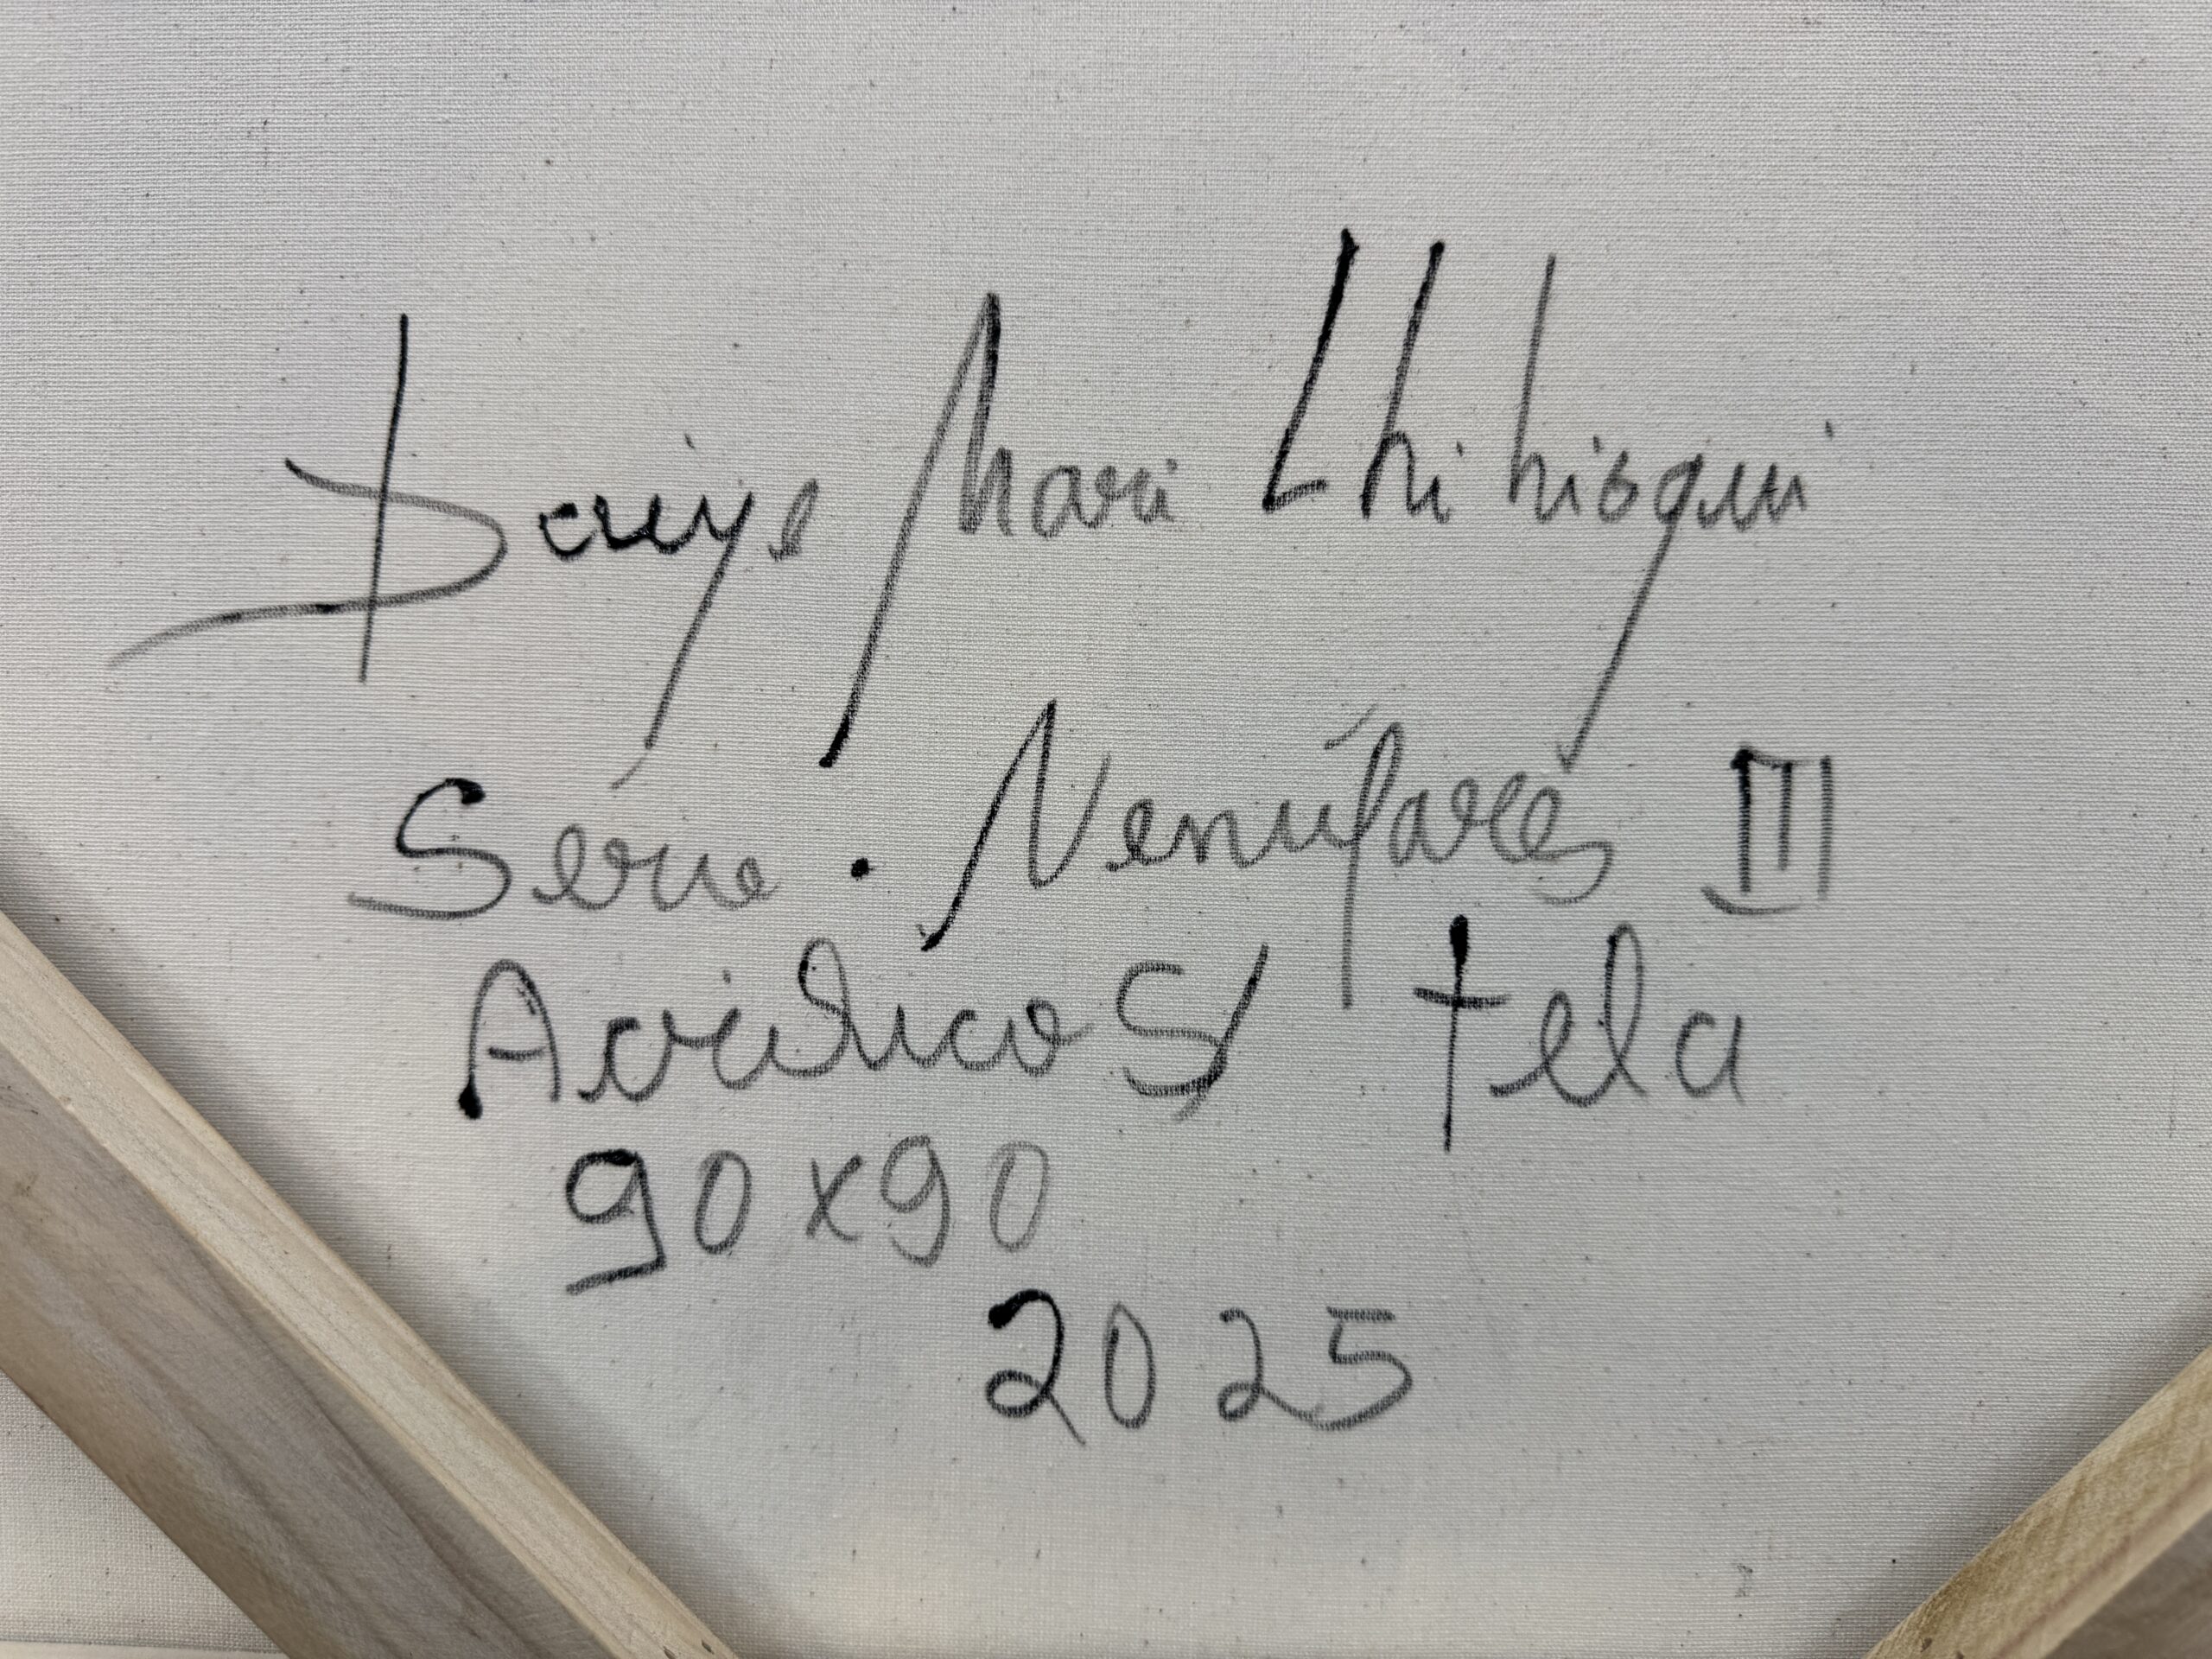 Denys Mari Chihisqui
Serie. Nenúfares III
Acrílico S/ tela
90x90
2025